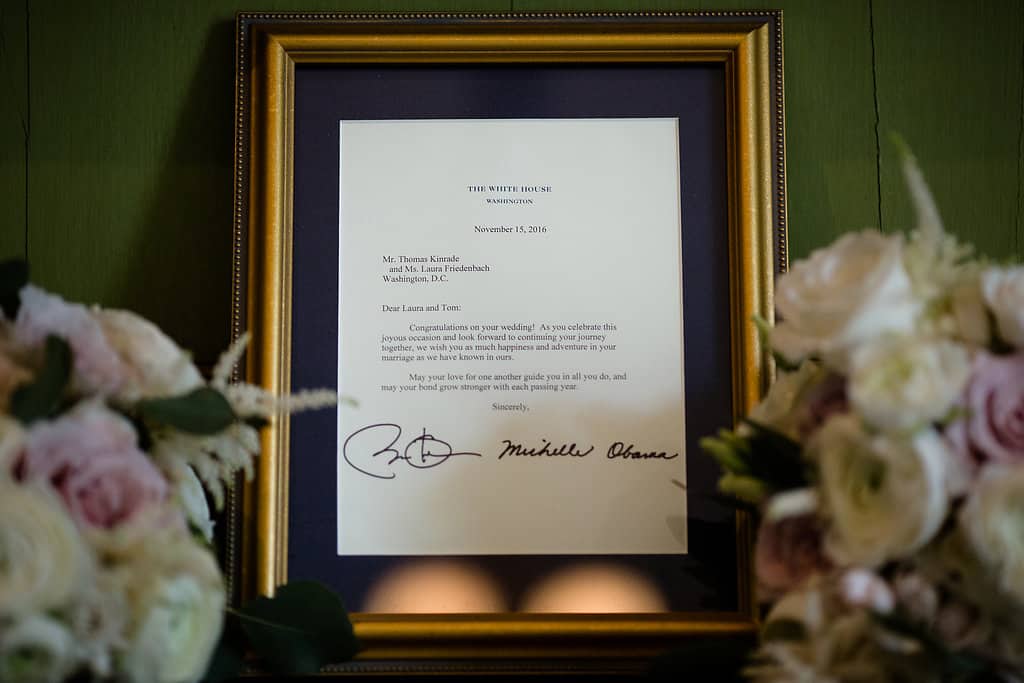 THE WHITE HOUSE
WASHINGTON
November 15, 2016
Mr. Thomas Kinrade
and Ms. Laura Friedenbach
Washington, D.C.
Dear Laura and Tom:
Congratulations on your wedding! As you celebrate this
joyous occasion and look forward to continuing your journey
together, we wish you as much happiness and adventure in your
marriage as we have known in ours.
May your love for one another guide you in all you do, and
may your bond grow stronger with each passing year.
Sincerely,
Michelle Obama